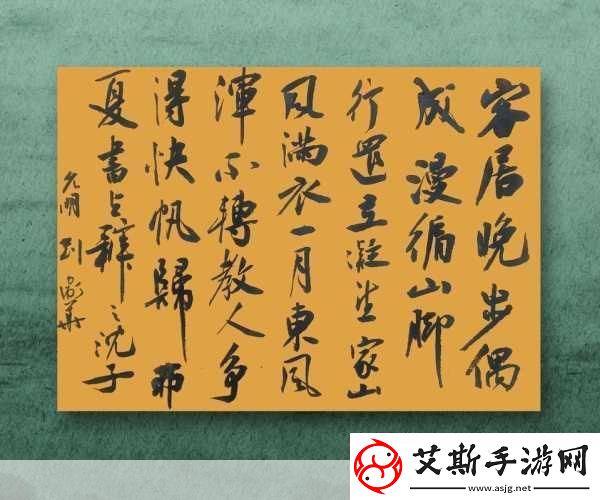 客居晚步偶
成漫循山脚
行還立凝望家山
风满衣一月東风
渾不轉教人争
得快帆歸
夏書与辞沈子
允明
艾斯手游网
www.asjg.net